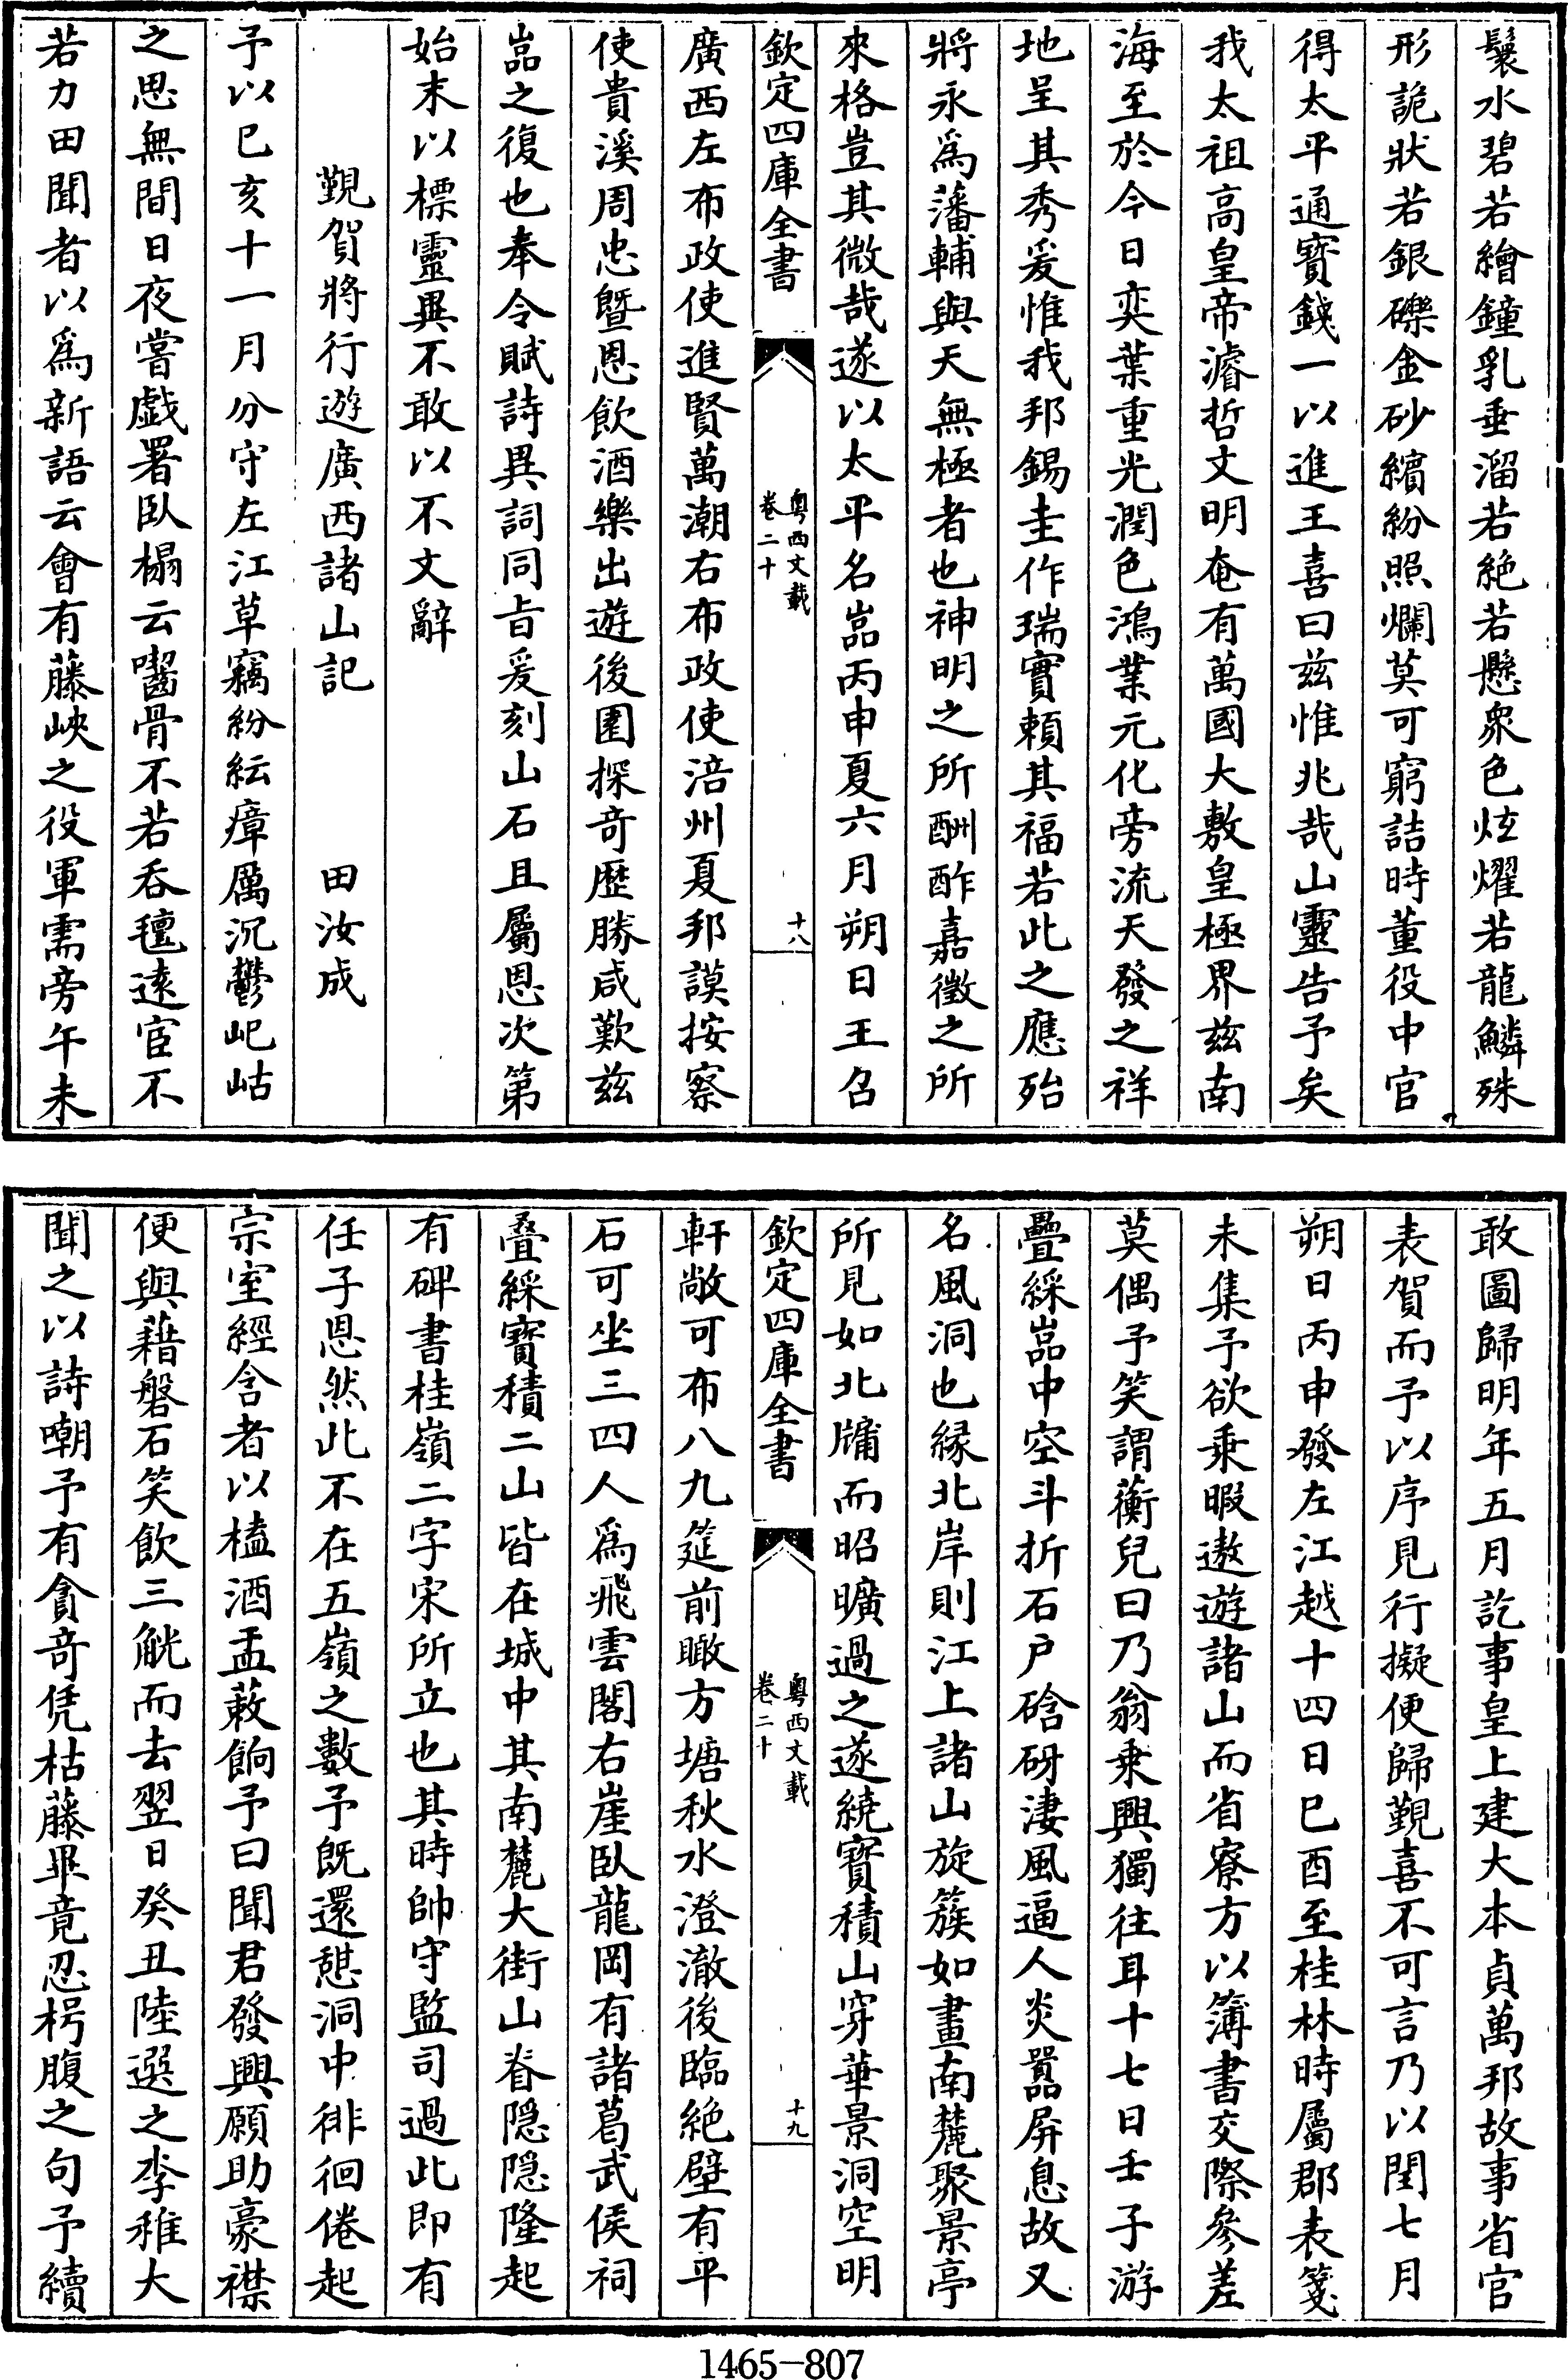 鬟水碧若繪鐘乳垂溜若絶若懸衆色炫燿若龍鱗殊
形詭狀若銀礫金砂繽紛照爛莫可窮詰時董役中官
得太平通寶錢一以進王喜曰兹惟兆哉山靈告予矣
我太祖高皇帝濬哲文明奄有萬國大敷皇極界兹南
海至於今日奕葉重光潤色鴻業元化旁流天發之祥
地呈其秀爰惟我邦錫圭作瑞實賴其福若此之應殆
將永爲藩輔與天無極者也神明之所酬酢嘉徵之所
來格豈其微哉遂以太平名嵓丙申夏六月朔日王召
欽定四庫全書
粤西文載
卷二十
十八
廣西左布政使進賢萬潮右布政使涪州夏邦謨按察
使貴溪周忠曁恩飲酒樂出遊後園探奇歴勝咸歎兹
嵓之復也奉令賦詩異詞同旨爰刻山石且屬恩次第
始末以標靈異不敢以不文辭
覲賀將行遊廣西諸山記 田汝成
予以巳亥十一月分守左江草竊紛紜瘴厲沉鬱屺岵
之思無間日夜嘗戯署臥榻云囓骨不若呑氊逺宦不
若力田聞者以爲新語云會有藤峽之役軍需旁午未
敢圖歸明年五月訖事皇上建大本貞萬邦故事省官
表賀而予以序見行擬便歸覲喜不可言乃以閏七月
朔日丙申發左江越十四日巳酉至桂林時屬郡表箋
未集予欲乘暇遨遊諸山而省寮方以簿書交際參差
莫偶予笑謂蘅兒曰乃翁乗興獨往耳十七日壬子游
疊綵嵓中空斗折石户硆砑淒風逼人炎嚣屏息故又
名風洞也縁北岸則江上諸山旋簇如畫南麓聚景亭
所見如北牗而昭曠過之遂繞寳積山穿華景洞空明
欽定四庫全書
粤西文載
卷二十
十九
軒敞可布八九筵前瞰方塘秋水澄澈後臨絶壁有平
石可坐三四人爲飛雲閣右崖臥龍岡有諸葛武侯祠
叠綵寳積二山皆在城中其南麓大街山脊隠隠隆起
有碑書桂嶺二字宋所立也其時帥守監司過此即有
任子恩然此不在五嶺之數予既還憩洞中徘徊倦起
宗室經含者以榼酒盂蔌餉予曰聞君發興願助豪襟
便與藉磐石笑飲三觥而去翌日癸丑陸選之李稚大
聞之以詩嘲予有貪奇凭枯藤畢竟忍枵腹之句予續
1465-807